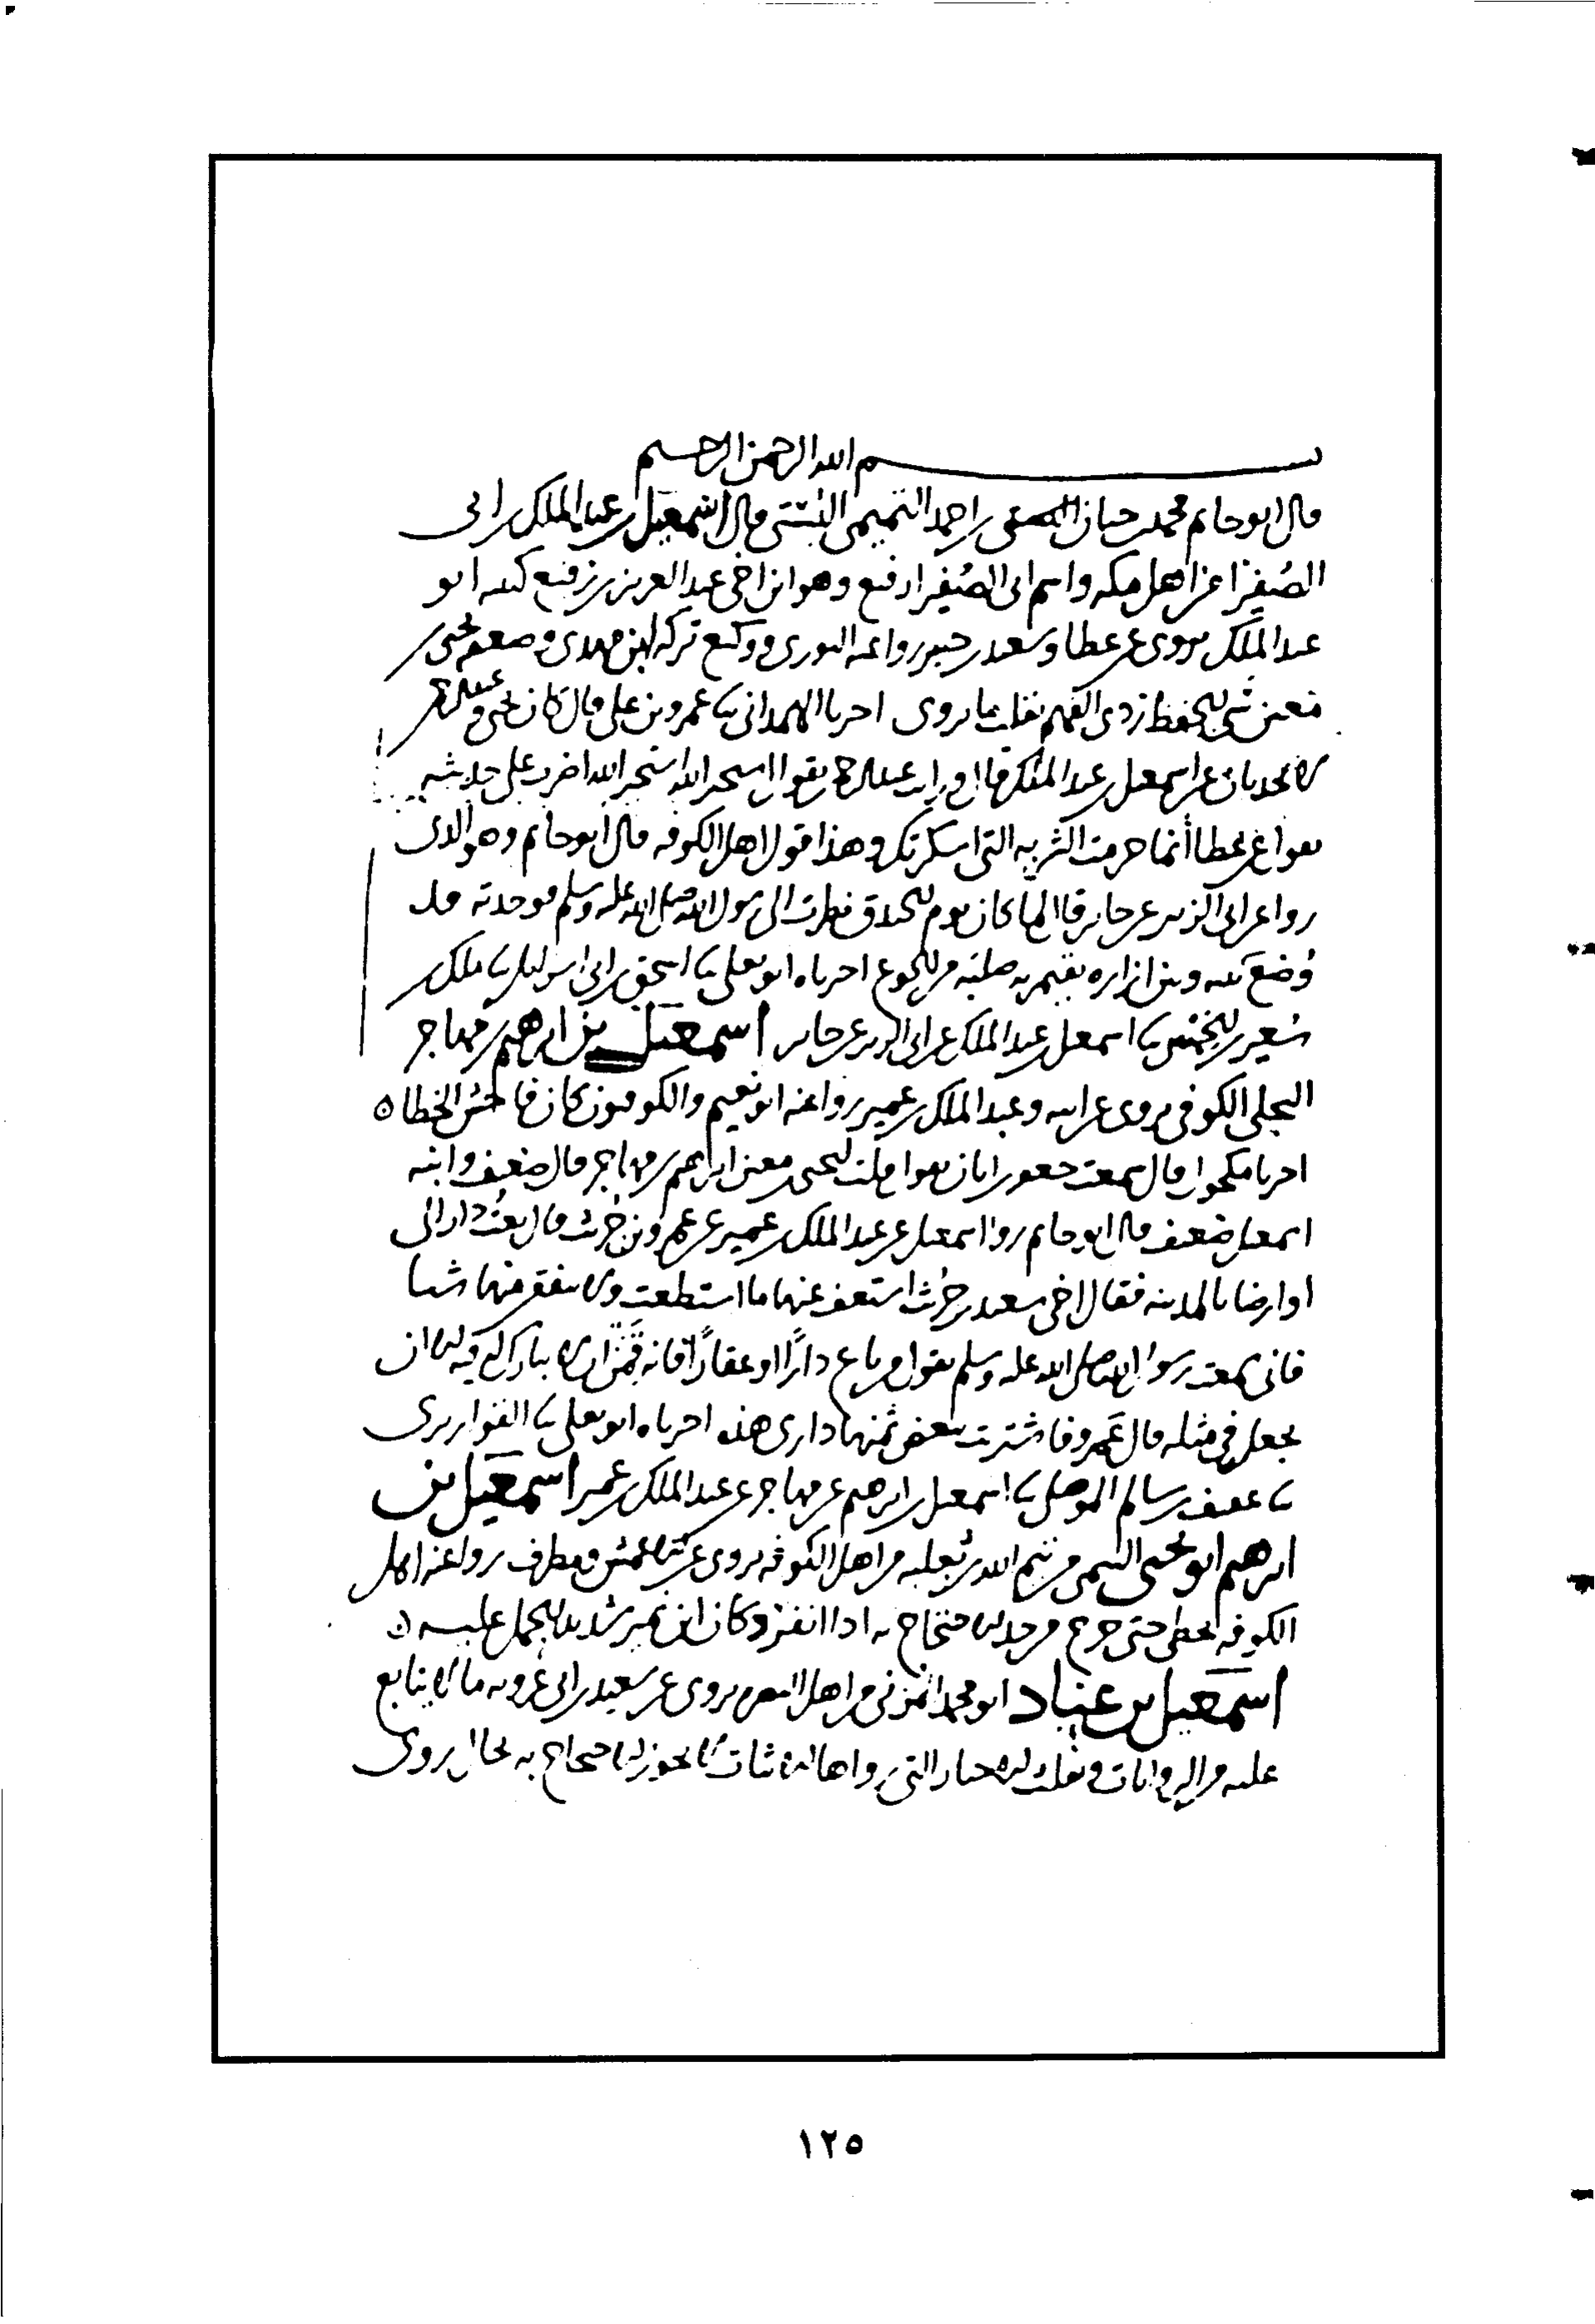 بسم الله الرحمن الرحيم
قال ابو حاتم محمد بن حبان بن احمد التميمي البستي قال اسمعيل بن عبد الملك بن ابي
الصفيرا من اهل مكه واسم ابي الصفيرا رفيع وهو ابن اخي عبد العزيز بن رفيع كنيته ابو
عبد الملك يروي عن عطا وسعيد بن جبير روا عنه الثوري ووكيع تركه ابن مهدي وضعفه يحيى بن
معين سي الحفظ ردي الفهم يقلب ما يروي اخبرنا الهمداني ثنا عمرو بن علي قال كان يحيى وعبد الرحمن
لا يحدثان عن اسمعيل بن عبد الملك قال ورايت عبد الرحمن يقول استخير الله استخير الله اضرب على حديثه
يقول عن عطا انما حرمت الشربه التي اسكرتك وهذا قول اهل الكوفه قال ابو حاتم وهو الذي
روا عن ابي الزبير عن جابر قال لما كان يوم الخندق نظرت الى رسول الله صلى الله عليه وسلم فوجدته قد
وضع بينه وبين ازاره يقيم به صلبه من الجوع اخبرناه ابو يعلى ثنا اسحق بن ابي اسرائيل ثنا ملك بن
سعير بن الخمس ثنا اسمعيل بن عبد الملك عن ابي الزبير عن جابر اسمعيل بن ابرهيم بن مهاجر
البجلي الكوفي يروي عن ابيه وعبد الملك بن عمير روا عنه ابو نعيم والكوفيون كان فاحش الخطا ه
اخبرنا مكحول قال سمعت جعفر بن ابان يقول قلت ليحيى بن معين ابراهيم بن مهاجر قال ضعيف وابنه
اسمعيل ضعيف قال ابو حاتم روا اسمعيل عن عبد الملك بن عمير عن عمرو بن حريث قال بعت دارا لي
او ارضا بالمدينه فقال لي اخي سعيد بن حريث استعف عنها ما استطعت ولا تنفق منها شيا
فاني سمعت رسول الله صلى الله عليه وسلم يقول من باع دارًا او عقارًا فانه قمن ان لا يبارك له فيه الا ان
يجعل في مثله قال عمرو فاشتريت ببعض ثمنها داري هذه اخبرناه ابو يعلى ثنا القواريري
ثنا عفيف بن سالم الموصلي ثنا اسمعيل بن ابرهيم بن مهاجر عن عبد الملك بن عمير اسمعيل بن
ابرهيم ابو يحيى التيمي من تيم الله بن ثعلبه من اهل الكوفه يروي عن الاعمش ومطرف روا عنه اهل
الكوفه يخطي حتى خرج من حد الاحتجاج به اذا انفرد وكان ابن نمير شديد الحمل عليه ه
اسمعيل بن عباد ابو محمد المزني من اهل البصره يروي عن سعيد بن ابي عروبه ما لا يتابع
عليه من الروايات ويقلب الاخبار التي رواها الاثبات لا يجوز الاحتجاج به بحال يروي
١٢٥